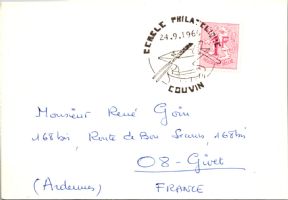 CERCLE PHILATELIQUE
24.9.196
COUVIN
Monsieur René Goin
168bis, Route de Bon Secours, 168bis
08 - Givet
(Ardennes) FRANCE